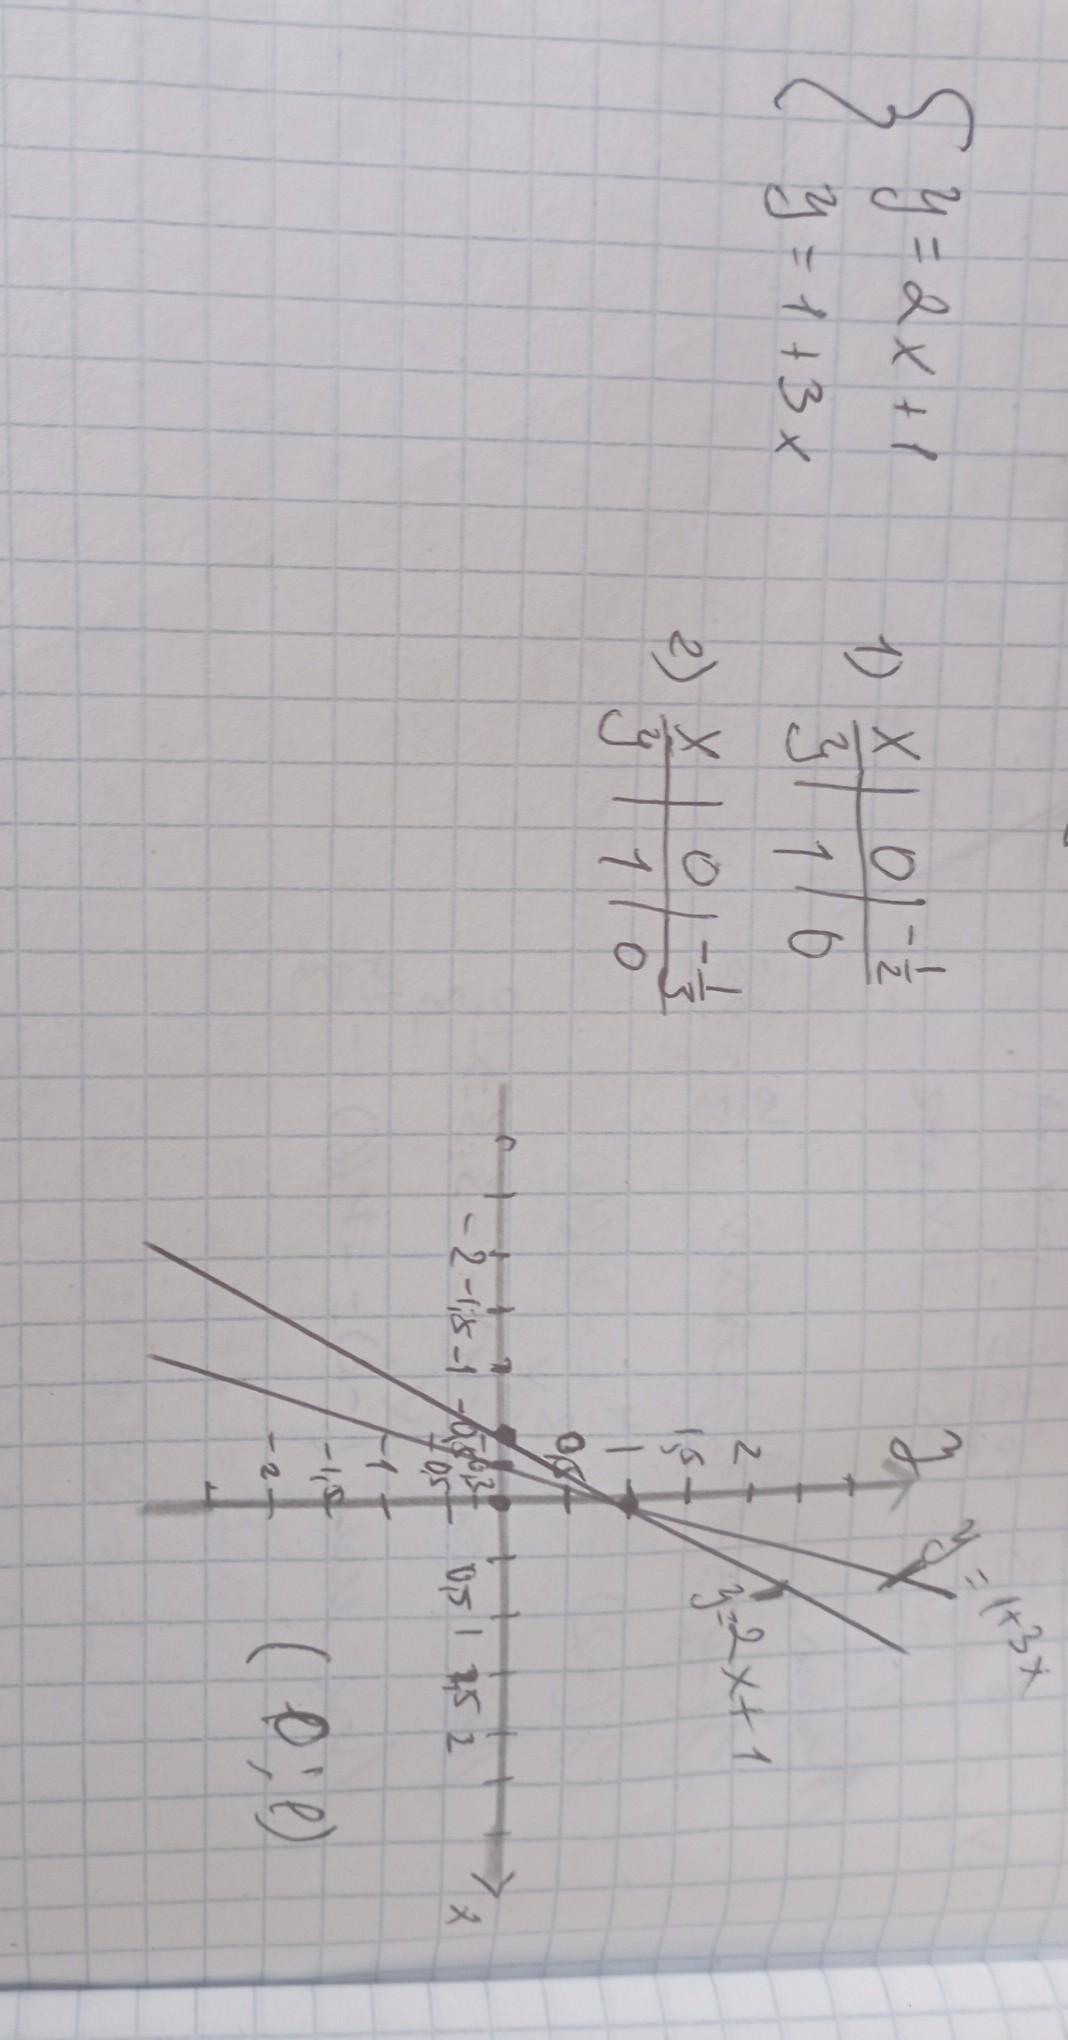 { y = 2x + 1
y = 1 + 3x
1) x | 0 | -1/2
y | 1 | 0
2) x | 0 | -1/3
y | 1 | 0
y
y = 1+3x
2
1,5
y=2x+1
1
0,5
-2 -1,5 -1 -0,5 -0,3 0,5 1 1,5 2 x
-0,5
-1
-1,5
-2
(0; 1)